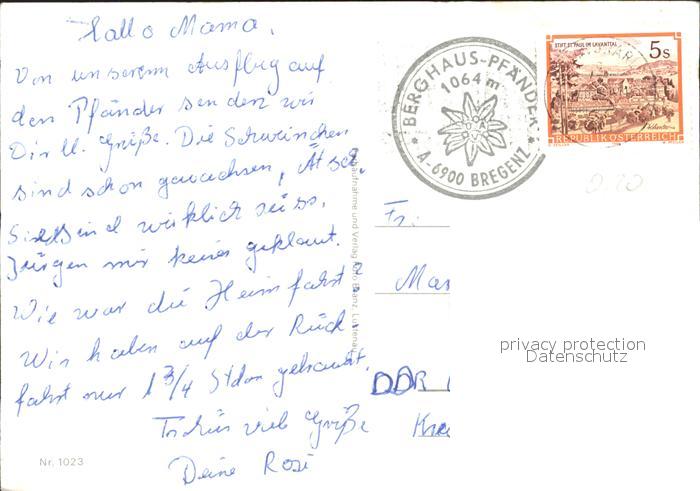 Hallo Mama,
Von unserem Ausflug auf
den Pfänder senden wir
Dir ll. Grüße. Die Schweinchen
sind schon gewachsen,
Sie sind wirklich süss.
Jürgen mir keines geklaut.
Wie war die Heimfahrt?
Wir haben auf der Rück-
fahrt nur 1 3/4 Stdn gebraucht.
Tschüs viele Grüße
Deine Rosi
Nr. 1023
Aufnahme und Verlag
BERGHAUS-PFÄNDER
1064 m
A-6900 BREGENZ
STIFT ST. PAUL IM LAVANTTAL
5s
REPUBLIK ÖSTERREICH
Fr.
Mas
DDR
Kre
privacy protection
Datenschutz